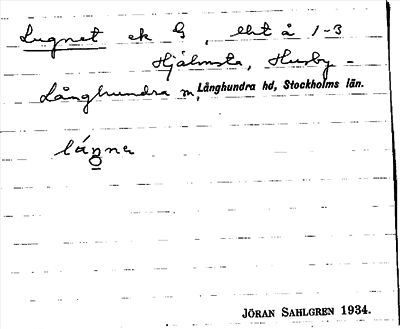 Lugnet ek G, ebt å 1-3
Hjälmsta, Husby-
Långhundra sn, Långhundra hd, Stockholms län.
JÖRAN SAHLGREN 1934.